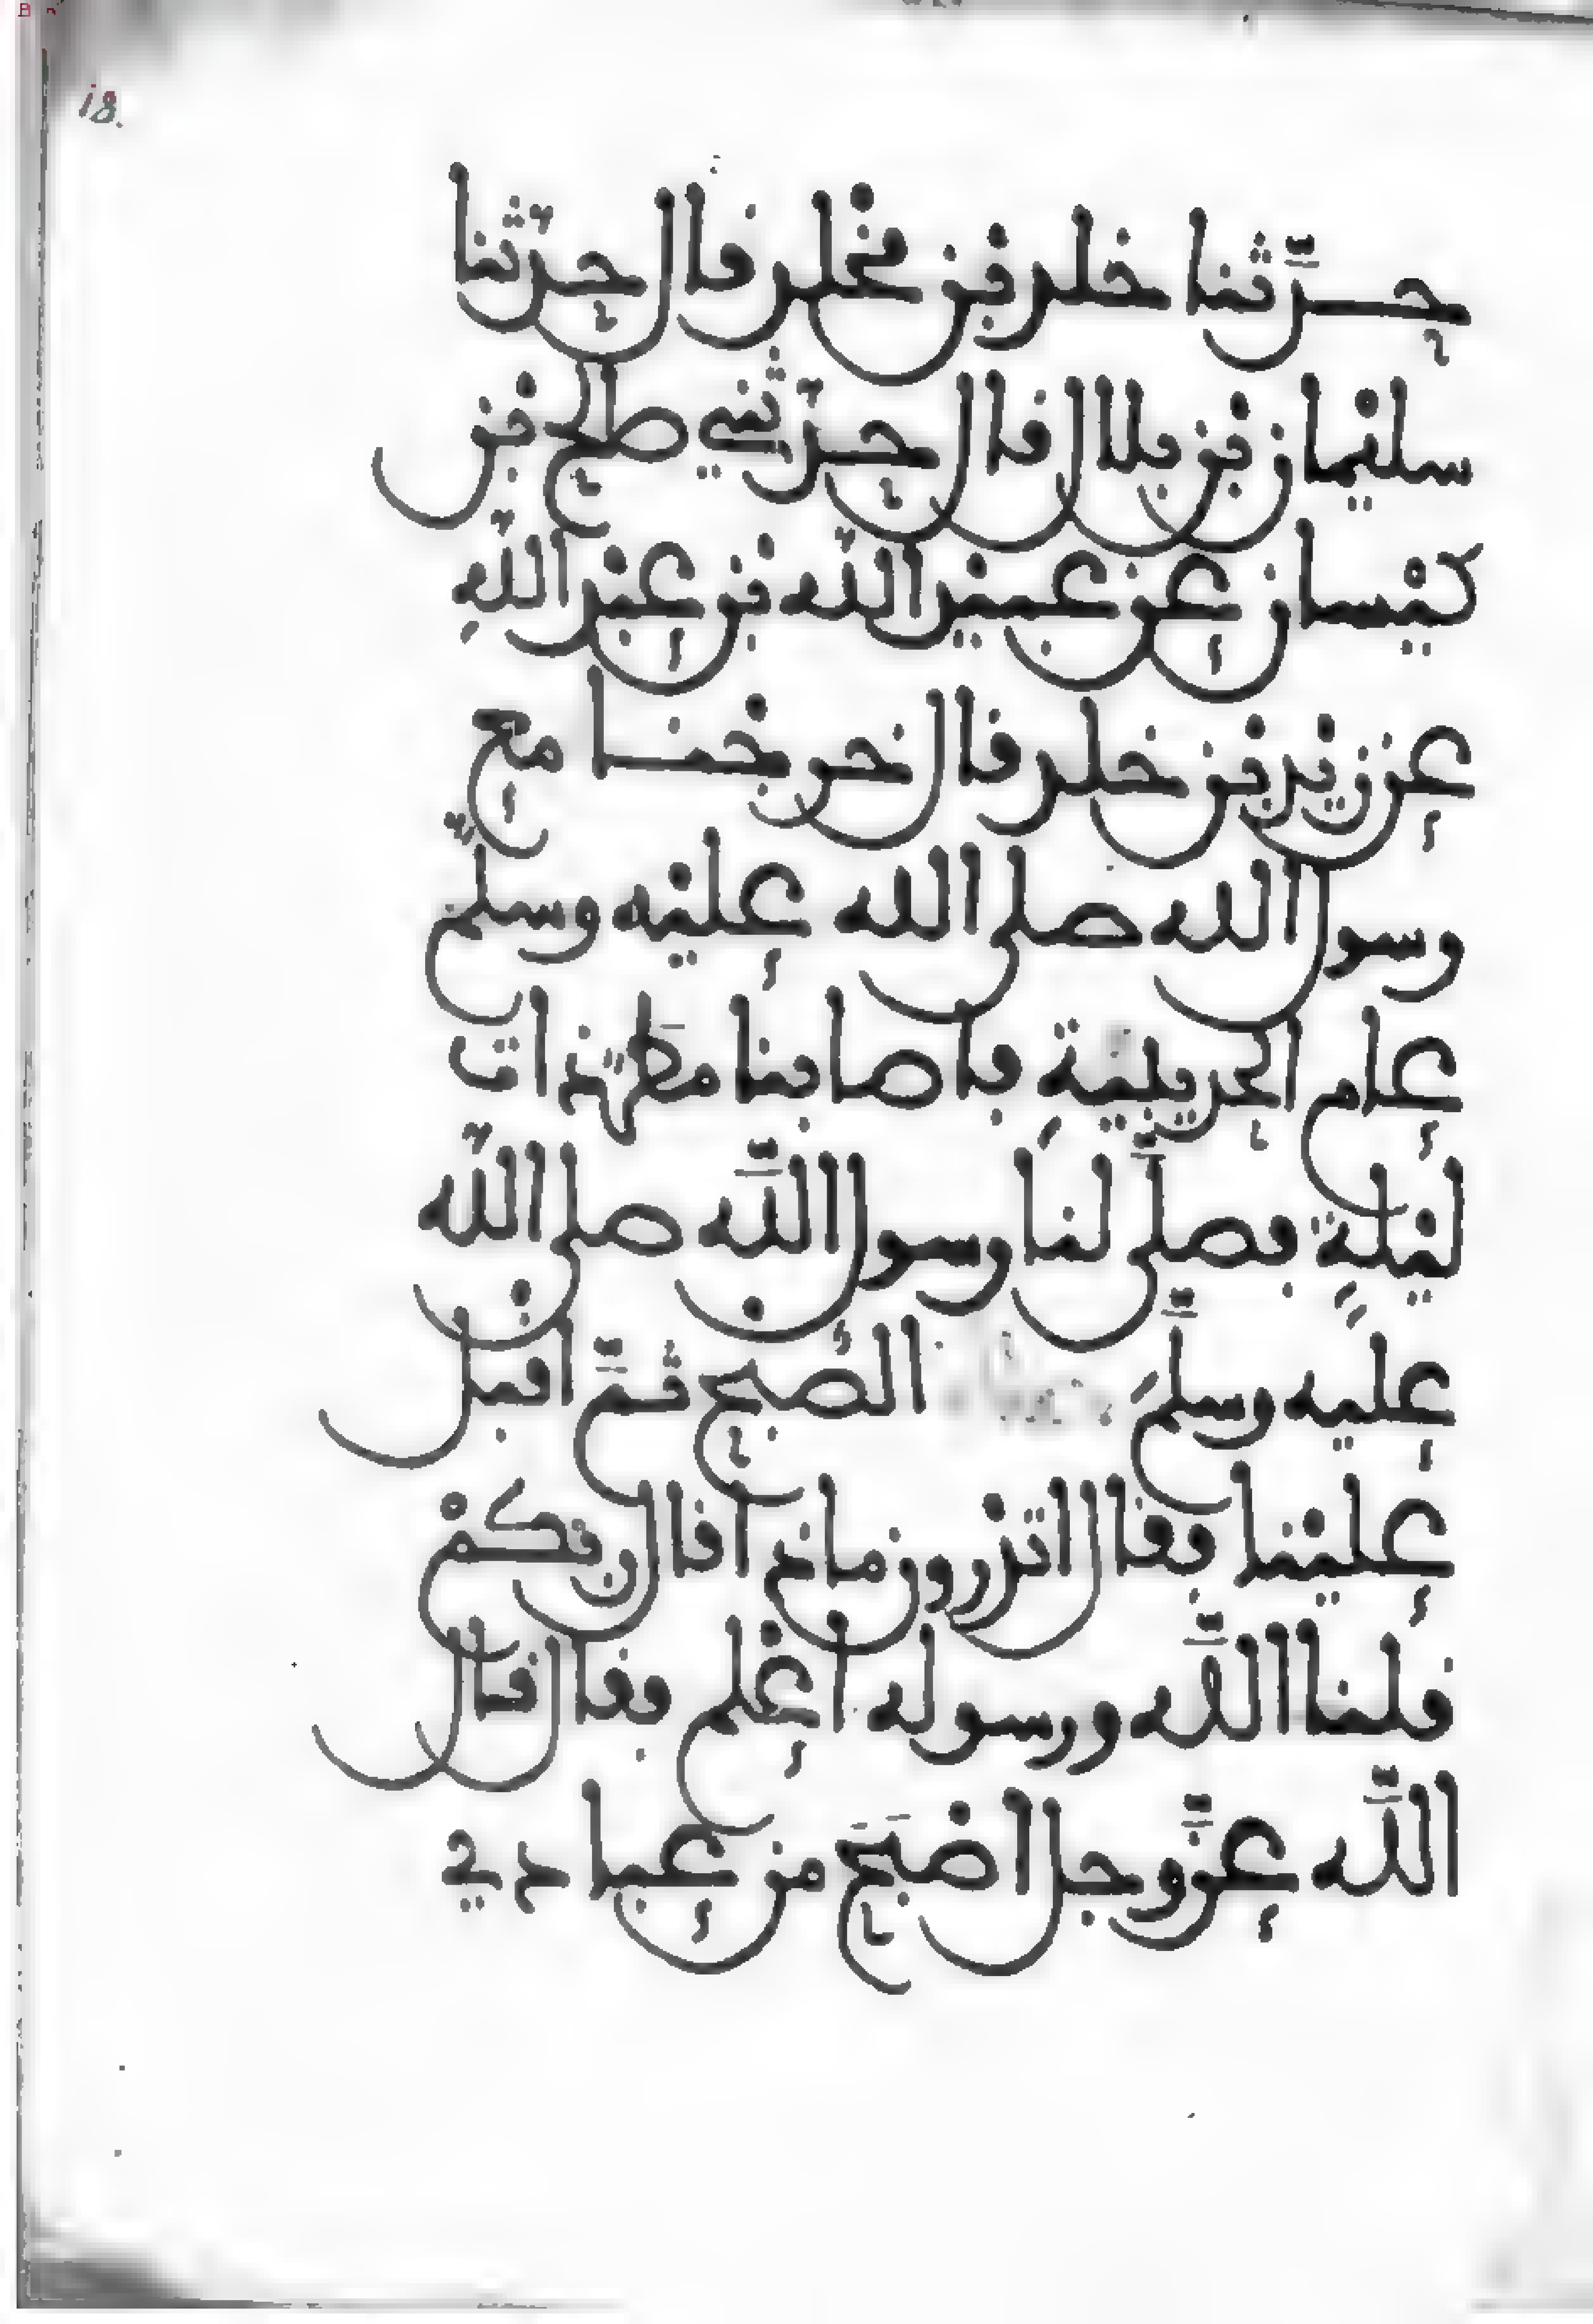 18.
حدّثنا خلد بن مخلد قال حدّثنا
سليمان بن بلال قال حدّثني صلح بن
كيسان عن عبيد اللّه بن عبد اللّهِ
عن زيد بن خلد قال خرجنا مع
رسول الله صلى الله عليه وسلّم
عام الحديبيةِ فأصابنا مطَر ذات
ليلةٍ فصلّى لنا رسول اللّه صلى اللّه
عليه وسلّمَ الصُبح ثمّ أقبل
علينا فقال اتدرون ماذا قال ربكمْ
قلنا اللّه ورسوله اعلم فقال قال
اللّه عزّ وجل اصْبَحَ من عبادي